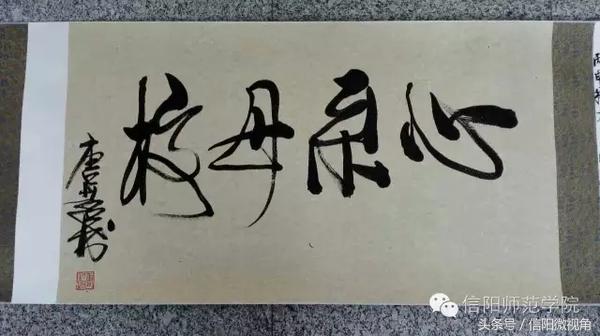 心系母校
信阳师范学院
头条号 / 信阳微视角